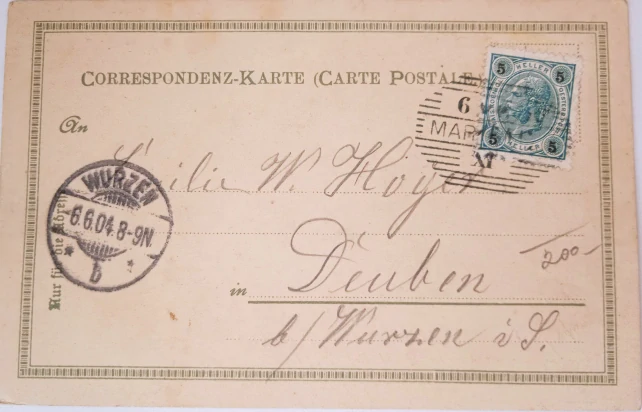 CORRESPONDENZ-KARTE (CARTE POSTALE
5 HELLER 5
5 5
6
MAR
VI
An
W. Höger
WURZEN
6.6.04.8-9N.
* b *
Nur für die Adresse
in Deuben
b/Wurzen i. S.
200-